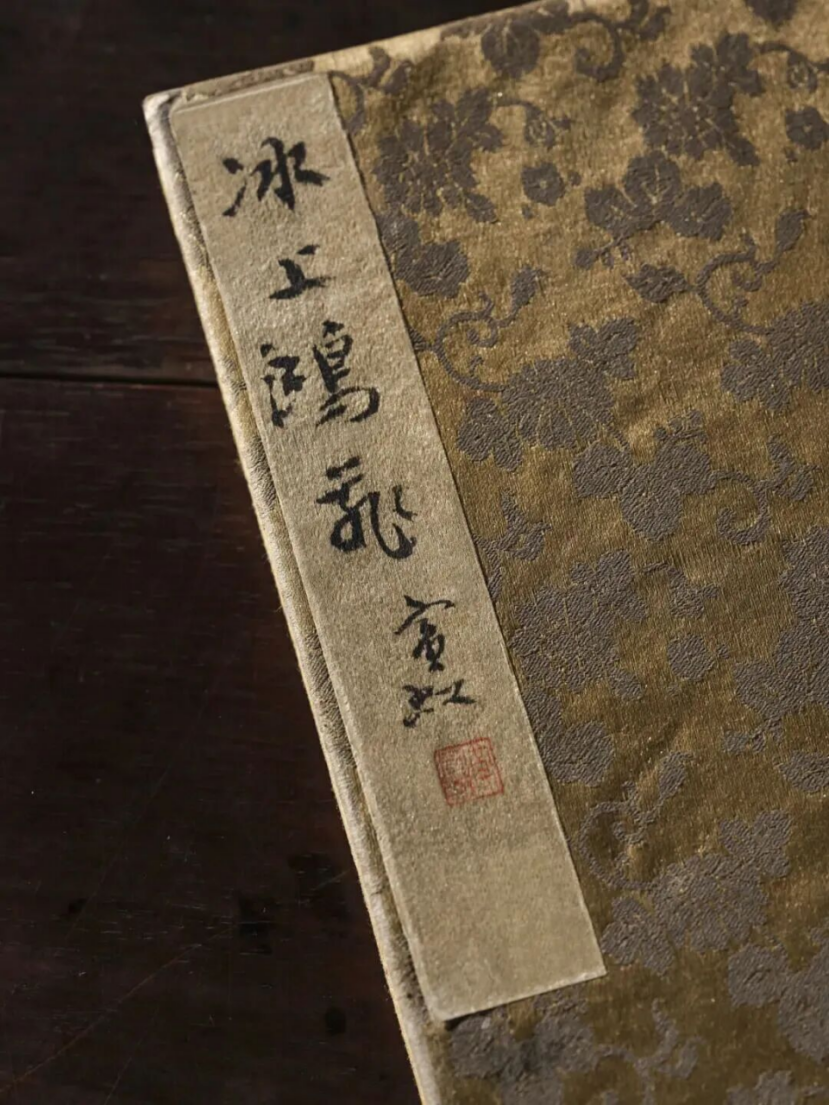 冰上鴻飛 賓虹